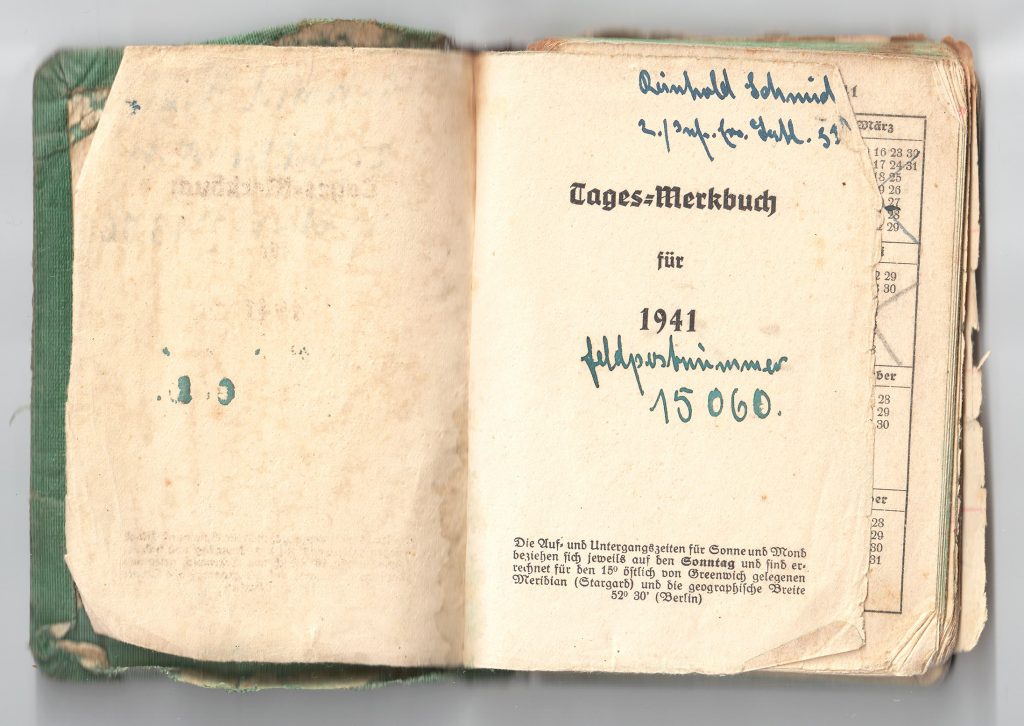 Reinhold Schmid
2./Inf. Ers. Batl. 53
Tages-Merkbuch
für
1941
Feldpostnummer
15 060.
Die Auf- und Untergangszeiten für Sonne und Mond
beziehen sich jeweils auf den Sonntag und sind er-
rechnet für den 15º östlich von Greenwich gelegenen
Meridian (Stargard) und die geographische Breite
52º 30' (Berlin)
März
16 23 30
17 24 31
18 25
19 26
27
28
29
29
30
ber
28
29
30
ber
28
29
30
31